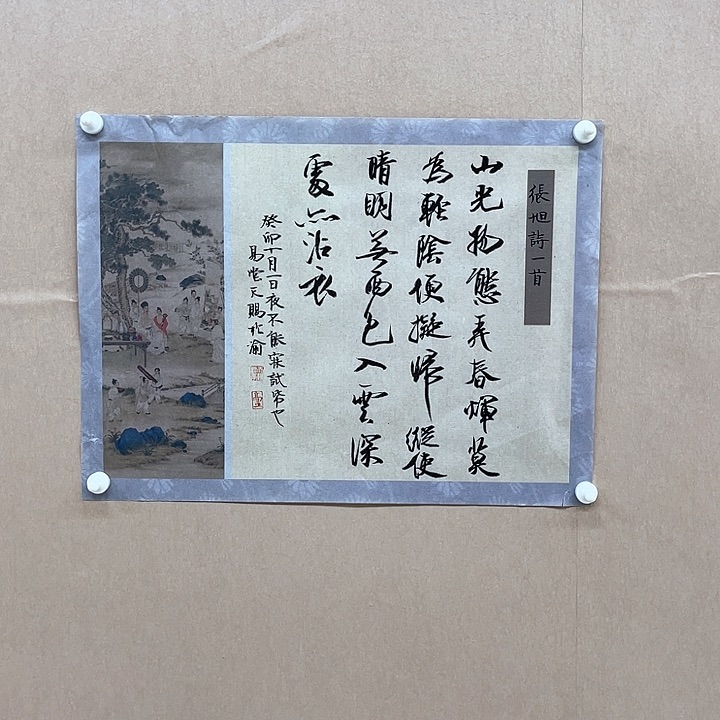 張旭詩一首
山光物態弄春暉莫
為輕陰便擬歸縱使
晴明無雨色入雲深
處亦沾衣
癸卯十月一日夜不能寐試帋也
易堂天賜於渝